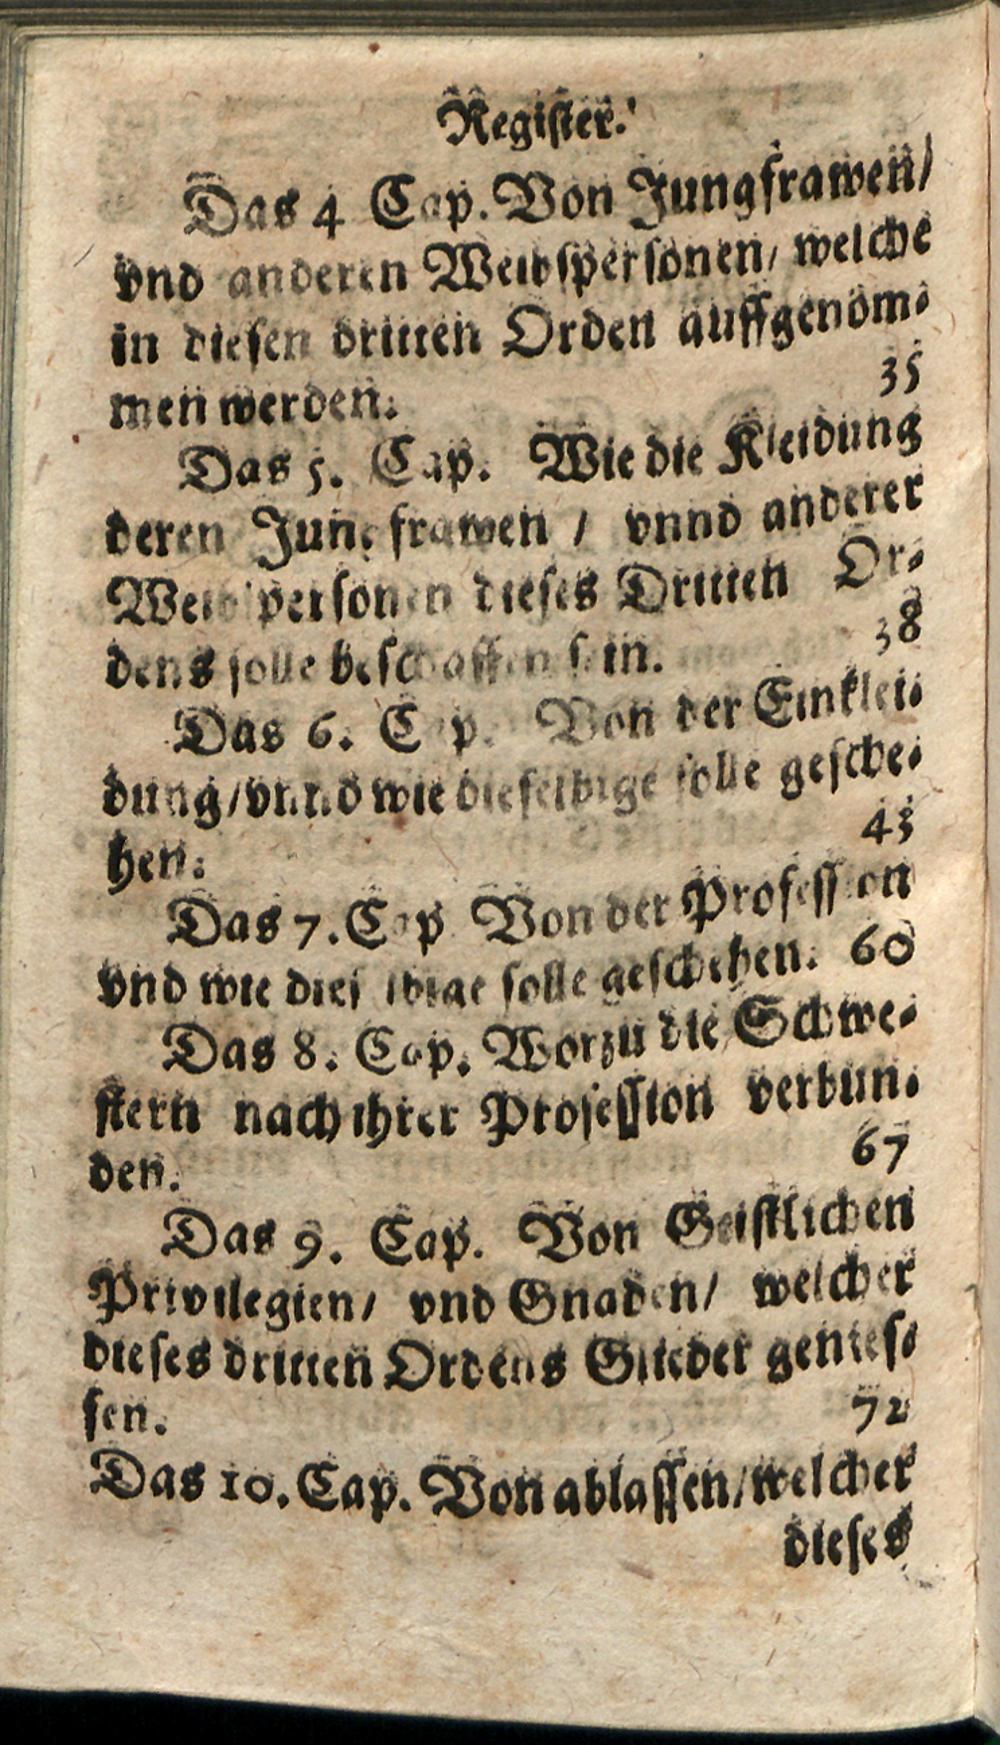 Register.
Das 4 Cap. Von Jungfrawen/
vnd anderen Weibspersonen/ welche
in diesen dritten Orden auffgenom-
men werden. 35
Das 5. Cap. Wie die Kleidung
deren Jungfrawen / vnnd anderer
Weibspersonen dieses Dritten Or-
dens solle beschaffen sein. 38
Das 6. Cap. Von der Einklei-
dung/vnnd wie dieselbige solle gesche-
hen. 43
Das 7. Cap Von der Profession
vnd wie dieselbige solle geschehen. 60
Das 8. Cap. Worzu die Schwe-
stern nach ihrer Profession verbun-
den. 67
Das 9. Cap. Von Geistlichen
Privilegien/ vnd Gnaden/ welcher
dieses dritten Ordens Glieder genies-
sen. 72
Das 10. Cap. Von ablassen/welcher
dieses